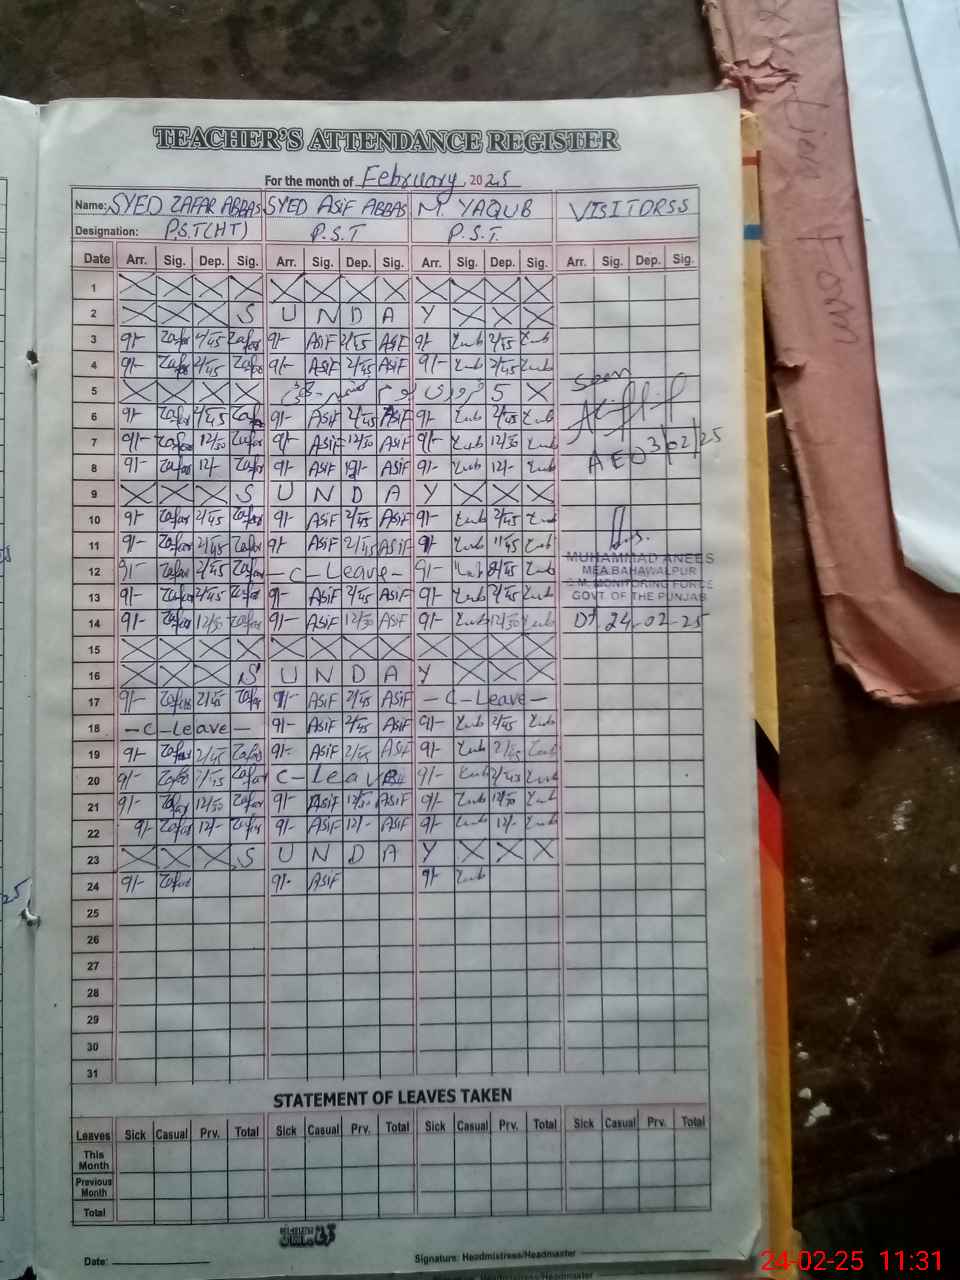 TEACHER'S ATTENDANCE REGISTER
For the month of February 2025
Name: SYED ZAFAR ABBAS SYED ASIF ABBAS M. YAQUB VISITORSS
Designation: P.S.T(HT) P.S.T P.S.T.
Date Arr. Sig. Dep. Sig. Arr. Sig. Dep. Sig. Arr. Sig. Dep. Sig. Arr. Sig. Dep. Sig.
1
2 S U N D A Y
3 9/- Zafar 2/45 Zafar 9/- ASIF 2/45 ASIF 9/- 2/45
4 9/- Zafar 2/45 Zafar 9/- ASIF 2/45 ASIF 9/- 2/45
5 یوم کشمیر 5 فروری
seen
6 9/- Zafar 2/45 Zafar 9/- ASIF 2/45 ASIF 9/- 2/45
7 9/- Zafar 12/30 Zafar 9/- ASIF 12/30 ASIF 9/- 12/30
AEO 3/02/25
8 9/- Zafar 12/- Zafar 9/- ASIF ASIF 9/- 12/-
9 S U N D A Y
10 9/- Zafar 2/45 Zafar 9/- ASIF 2/45 ASIF 9/- 2/45
11 9/- Zafar 2/45 Zafar 9/- ASIF 2/45 ASIF 9/- 11/45
MUHAMMAD ANEES
12 9/- Zafar 2/45 Zafar - C - Leave - 9/- 2/45
MEA.BAHAWALPUR
C.M. MONITORING FORCE
13 9/- Zafar 2/45 Zafar 9/- ASIF 2/45 ASIF 9/- 2/45
GOVT. OF THE PUNJAB
14 9/- Zafar 12/30 Zafar 9/- ASIF 12/30 ASIF 9/- 12/30 Dt 24-02-25
15
16 S U N D A Y
17 9/- Zafar 2/45 Zafar 9/- ASIF 2/45 ASIF - C - Leave -
18 - C - Leave - 9/- ASIF 2/45 ASIF 9/- 2/45
19 9/- Zafar 2/45 Zafar 9/- ASIF 2/45 ASIF 9/- 2/45
20 9/- Zafar 2/45 Zafar C - Leave 9/- 2/45
21 9/- Zafar 12/30 Zafar 9/- ASIF 12/30 ASIF 9/- 12/30
22 9/- Zafar 12/- Zafar 9/- ASIF 12/- ASIF 9/- 12/-
23 S U N D A Y
24 9/- Zafar 9/- ASIF 9/-
25
26
27
28
29
30
31
STATEMENT OF LEAVES TAKEN
Leaves Sick Casual Prv. Total Sick Casual Prv. Total Sick Casual Prv. Total Sick Casual Prv. Total
This Month
Previous Month
Total
Date: Signature: Headmistress/Headmaster
24-02-25 11:31